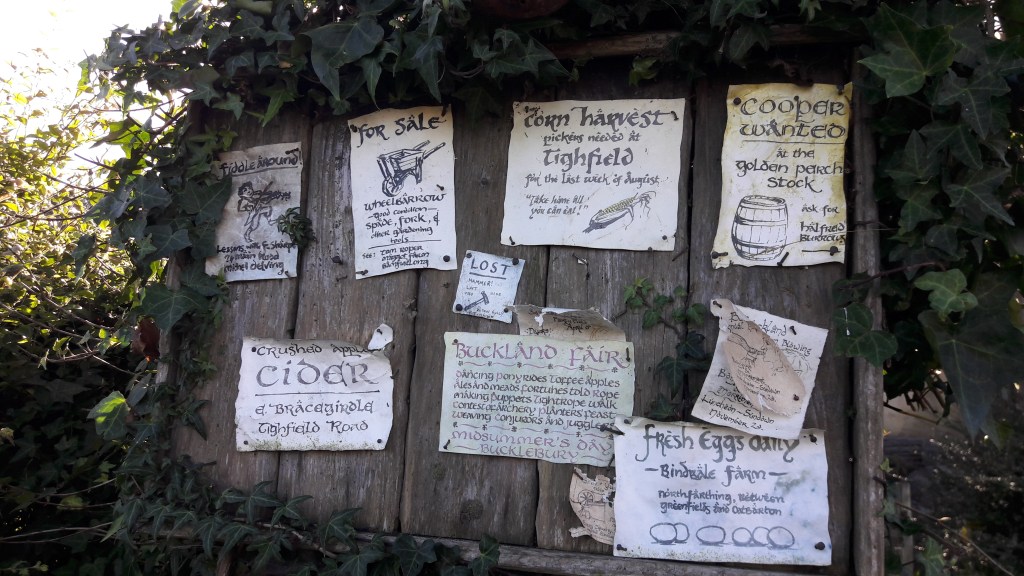 Fiddle Around!
Lessons with
Michel Delving
For Sale
Wheelbarrow
Good condition
Spade, Fork, &
other gardening
tools
See: Tom
Corn Harvest
pickers needed at
Tighfield
for the last week of August
"Take home all
you can eat!"
Cooper
Wanted
at the
Golden Perch
Stock
Ask for
Halfred
LOST
HAMMER!
Crushed Apple
Cider
E. Bracegirdle
Tighfield Road
Buckland Fair
Dancing Pony Rides Toffee Apples
Ales and Meads Fortunes Told Rope
Making Puppets Tightrope Walk
Contest Archery Planters Feast
Conjurors and Jugglers
Midsummer's Day
Bucklebury
November
Fresh Eggs Daily
- Bindbale Farm -
Northfarthing, between
Greenfields and Oatbarton